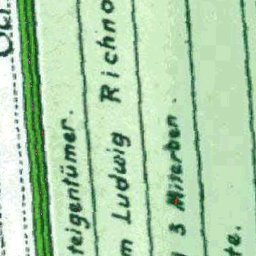 teigentümer.
m Ludwig Richno
3 Miterben.
te.